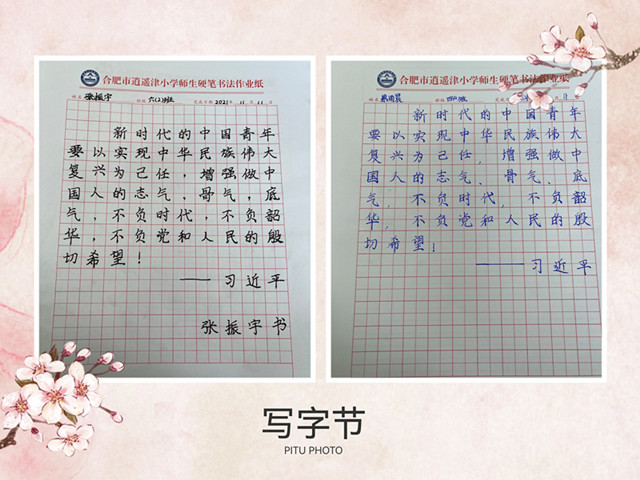 合肥市逍遥津小学师生硬笔书法作业纸
张振宇 六(2)班 2021年11月11日
新时代的中国青年
要以实现中华民族伟大
复兴为己任，增强做中
国人的志气，骨气，底
气，不负时代，不负韶
华，不负党和人民的殷
切希望！
——习近平
张振宇书
合肥市逍遥津小学师生硬笔书法作业纸
新时代的中国青年
要以实现中华民族伟大
复兴为己任，增强做中
国人的志气、骨气、底
气，不负时代，不负韶
华，不负党和人民的殷
切希望！
——习近平
写字节
PITU PHOTO